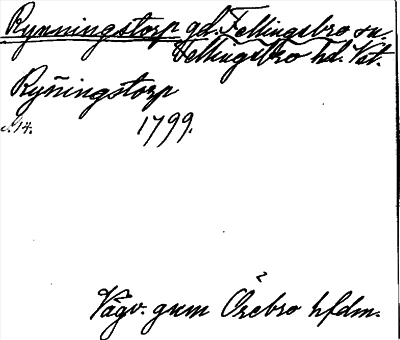 Rynningstorp gd. Fellingsbro sn.
Fellingsbro hd. Väst.
Ryñingstorp
1799.
Vägv. gnm Örebro hfdm.